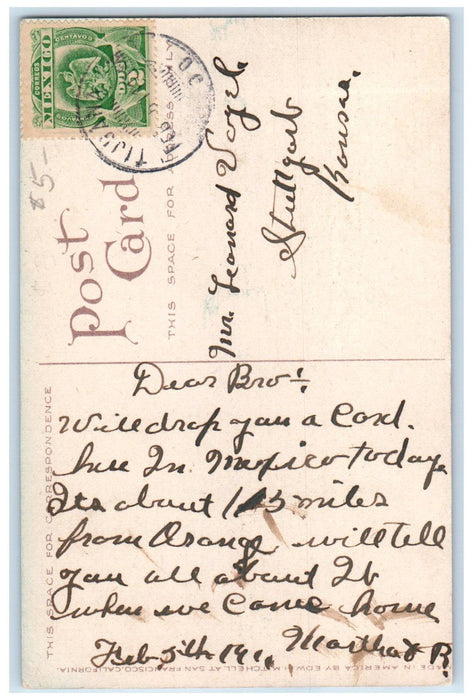 CORREOS MEXICO
2 CENTAVOS 2
TIJUANA
FEB
$5-
Post
Card
THIS SPACE FOR ADDRESS ONLY
Mr. Leonard Vogel
Stuttgart
Kansas.
THIS SPACE FOR CORRESPONDENCE
Dear Bro!
Will drop you a Card.
here In Mexico today
Its about 115 miles
from Orange will tell
you all about It
when we Come home
Feb 5th 1911 Martha & B.
MADE IN AMERICA BY EDW. H. MITCHELL AT SAN FRANCISCO, CALIFORNIA.